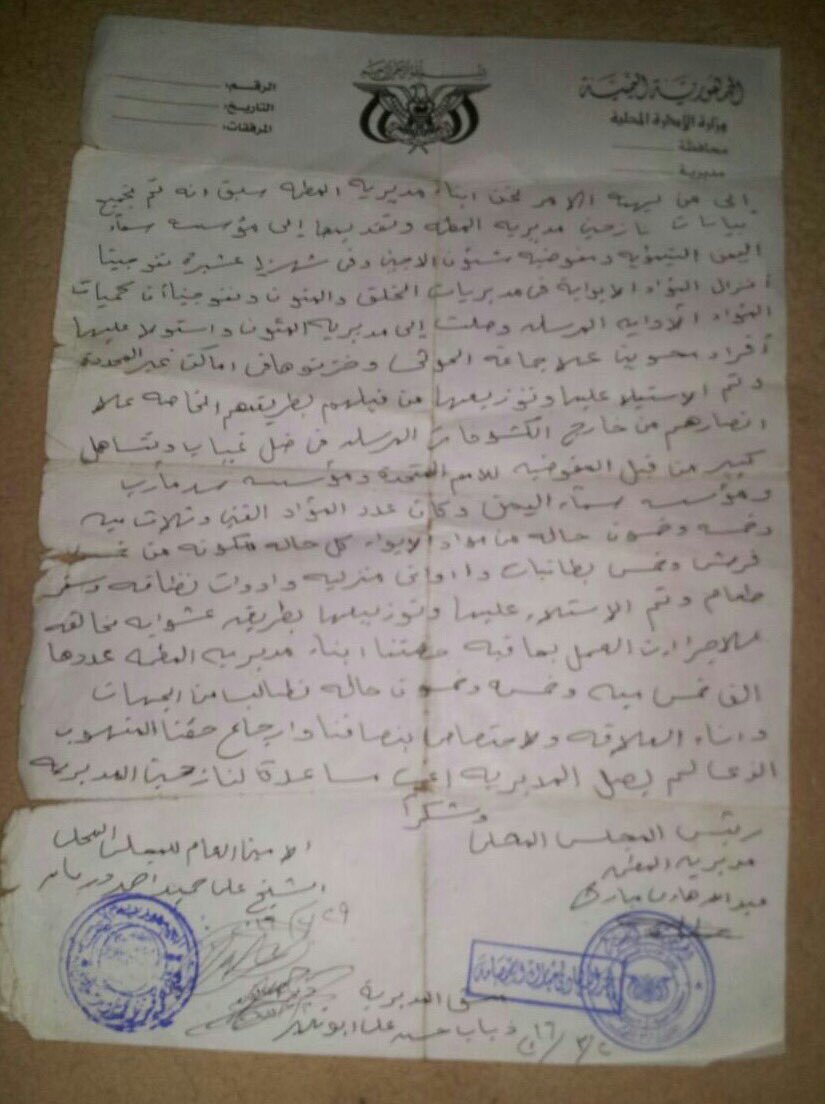 الجمهورية اليمنية
وزارة الإدارة المحلية
محافظة
مديرية
الرقم:
التاريخ:
المرفقات:
إلى من يهمه الامر نحن ابناء مديرية المطمه سبق انه تم تجميع
بيانات نازحين مديريه المطمه وتقديمها إلى مؤسسه سماء
اليمن التنمويه ومفوضية شئون الاجين وفي شهر عشرة تفوجينا
انزال المواد الايوايه في مديريات الخلق والمتون وتفوجينا أن كميات
المواد الأوايه المرسله وصلت إلى مديريه المتون واستولا عليها
أفراد محسوبين علا جماعه الحوثي وخزنوها في اماكن غير المحددة
وتم الاستيلا عليها وتوزيعها من قبلهم بطريقتهم الخاصه علا
انصارهم من خارج الكشوفات المرسله في ضل غياب وتساهل
كبير من قبل المفوضيه للامم المتحدة ومؤسسه سد مارب
ومؤسسه سماء اليمن وكان عدد المواد الفين وثلاث ميه
وخمسه وخمسون حاله من مواد الايواء كل حاله متكونه من خمس
فريش وخمس بطانيات و اواني منزليه وادوات نظافه وسفر
طعام وتم الاستلاء عليها وتوزيعها بطريقه عشوايه مخالفه
للاجراءات العمل بما فيه حصتنا ابناء مديريه المطمه عددها
الف خمس ميه وخمسه وخمسون حاله نطالب من الجهات
وذات العلاقه ولاختصاص بنصافنا وارجاع حقنا المنهوب
الذي لم يصل المديريه اي مساعدة لنازحين المديريه
وشكراً
رئيس المجلس المحلي
مديريه المطمه
عبدالله هادي مبارك
الامين العام للمجلس المحلي
الشيخ علي حميد احمد
منسق المديرية
ذياب حسن علي